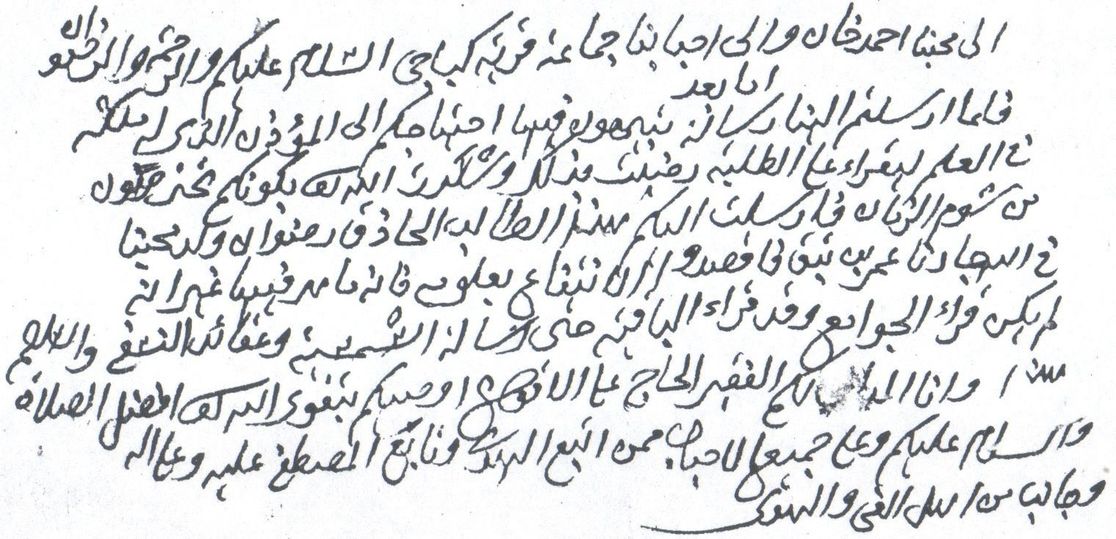 الى محبنا احمدخان والى احبابنا جماعة قرية كياجى السلام عليكم والرحمة والرضوان
اما بعد
فلما ارسلتم الينا رسالة فيها احتياجكم الى المؤذن الذى له ملكة
فى العلم ليقراء على الطلبة رضيت بذلك وشكرت الله بكونكم
من شوم الزمان فارسلت اليكم هذا الطالب الحاذق رضوان ولد محبنا
فى الله عمر الانتفاع بعلومه فانه ماهر فيها غير انه
لم يكن قراء الجوامع وقد قراء الباقية حتى رسالة الشمسية وعقائد النسفى والسلام
هذا وانا الفقير الحاج على اوصيكم بتقوى الله افضل الصلاة
والسلام عليكم وعلى جميع الاحباب ممن اتبع الهدى وتابع المصطفى عليه وعلى اله
وجانب من اهل الغى والهوى